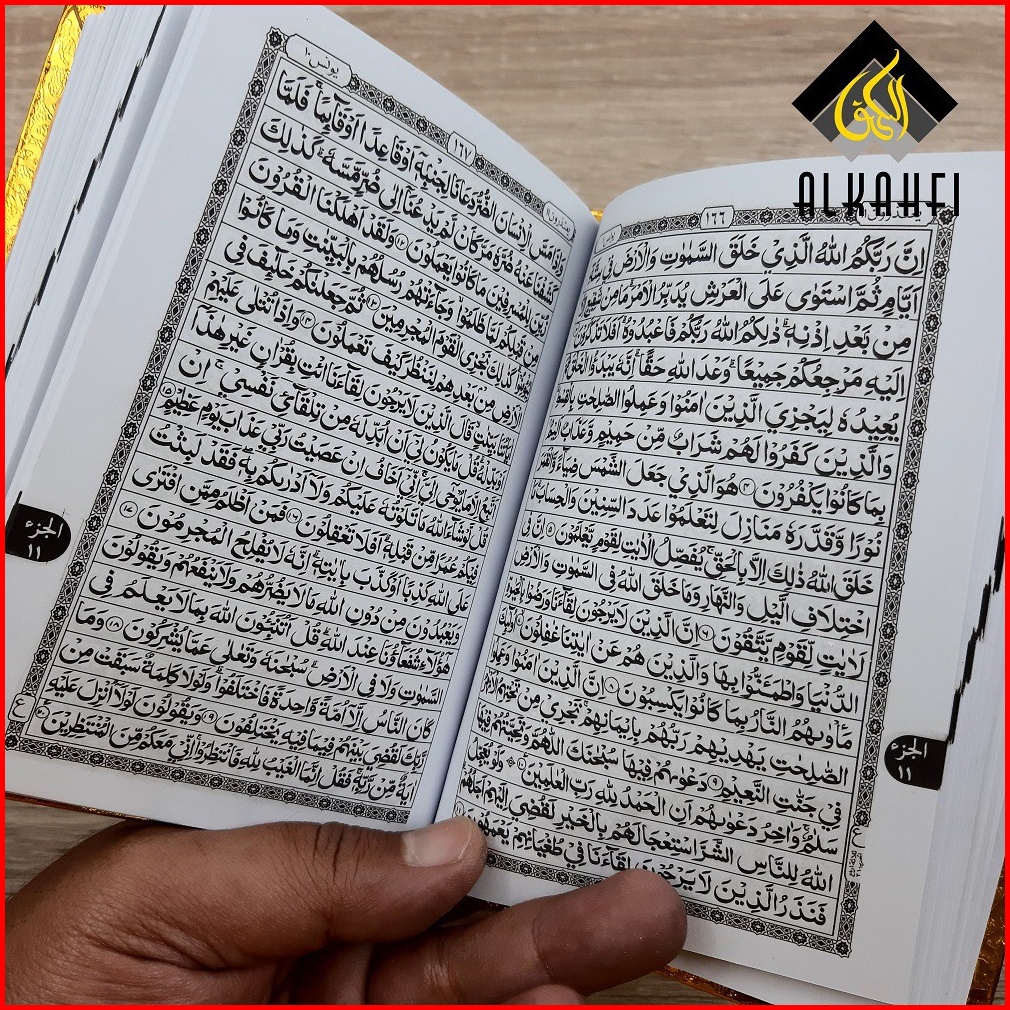 ALKAHFI
١٦٦
اِنَّ رَبَّكُمُ اللّٰهُ الَّذِيْ خَلَقَ السَّمٰوٰتِ وَالْاَرْضَ فِيْ
اَيَّامٍ ثُمَّ اسْتَوٰى عَلَى الْعَرْشِ يُدَبِّرُ الْاَمْرَ مَا مِنْ شَفِيْعٍ
مِنْۢ بَعْدِ اِذْنِهٖ ذٰلِكُمُ اللّٰهُ رَبُّكُمْ فَاعْبُدُوْهُ اَفَلَا تَذَكَّرُوْنَ
اِلَيْهِ مَرْجِعُكُمْ جَمِيْعًا وَعْدَ اللّٰهِ حَقًّا اِنَّهٗ يَبْدَؤُا الْخَلْقَ
يُعِيْدُهٗ لِيَجْزِيَ الَّذِيْنَ اٰمَنُوْا وَعَمِلُوا الصّٰلِحٰتِ بِالْقِسْطِ
وَالَّذِيْنَ كَفَرُوْا لَهُمْ شَرَابٌ مِّنْ حَمِيْمٍ وَّعَذَابٌ اَلِيْمٌ
بِمَا كَانُوْا يَكْفُرُوْنَ ٤ هُوَ الَّذِيْ جَعَلَ الشَّمْسَ ضِيَاۤءً وَّالْقَمَرَ
نُوْرًا وَّقَدَّرَهٗ مَنَازِلَ لِتَعْلَمُوْا عَدَدَ السِّنِيْنَ وَالْحِسَابَ
خَلَقَ اللّٰهُ ذٰلِكَ اِلَّا بِالْحَقِّ يُفَصِّلُ الْاٰيٰتِ لِقَوْمٍ يَّعْلَمُوْنَ ٥ اِنَّ فِى
اخْتِلَافِ الَّيْلِ وَالنَّهَارِ وَمَا خَلَقَ اللّٰهُ فِى السَّمٰوٰتِ وَالْاَرْضِ
لَاٰيٰتٍ لِّقَوْمٍ يَّتَّقُوْنَ ٦ اِنَّ الَّذِيْنَ لَا يَرْجُوْنَ لِقَاۤءَنَا وَرَضُوْا بِالْحَيٰوةِ
الدُّنْيَا وَاطْمَـَٔنُّوْا بِهَا وَالَّذِيْنَ هُمْ عَنْ اٰيٰتِنَا غٰفِلُوْنَ ٧ اُولٰۤىِٕكَ
مَأْوٰىهُمُ النَّارُ بِمَا كَانُوْا يَكْسِبُوْنَ ٨ اِنَّ الَّذِيْنَ اٰمَنُوْا وَعَمِلُوا
الصّٰلِحٰتِ يَهْدِيْهِمْ رَبُّهُمْ بِاِيْمَانِهِمْ تَجْرِيْ مِنْ تَحْتِهِمُ الْاَنْهٰرُ
فِيْ جَنّٰتِ النَّعِيْمِ ٩ دَعْوٰىهُمْ فِيْهَا سُبْحٰنَكَ اللّٰهُمَّ وَتَحِيَّتُهُمْ فِيْهَا
سَلٰمٌ وَاٰخِرُ دَعْوٰىهُمْ اَنِ الْحَمْدُ لِلّٰهِ رَبِّ الْعٰلَمِيْنَ ١٠ وَلَوْ يُعَجِّلُ
اللّٰهُ لِلنَّاسِ الشَّرَّ اسْتِعْجَالَهُمْ بِالْخَيْرِ لَقُضِيَ اِلَيْهِمْ اَجَلُهُمْ
فَنَذَرُ الَّذِيْنَ لَا يَرْجُوْنَ لِقَاۤءَنَا فِيْ طُغْيَانِهِمْ يَعْمَهُوْنَ
الجزء
١١
يونس ١٠
١٦٧
وَاِذَا مَسَّ الْاِنْسَانَ الضُّرُّ دَعَانَا لِجَنْۢبِهٖٓ اَوْ قَاعِدًا اَوْ قَاۤىِٕمًا فَلَمَّا
كَشَفْنَا عَنْهُ ضُرَّهٗ مَرَّ كَاَنْ لَّمْ يَدْعُنَآ اِلٰى ضُرٍّ مَّسَّهٗ كَذٰلِكَ
زُيِّنَ لِلْمُسْرِفِيْنَ مَا كَانُوْا يَعْمَلُوْنَ ١٢ وَلَقَدْ اَهْلَكْنَا الْقُرُوْنَ
مِنْ قَبْلِكُمْ لَمَّا ظَلَمُوْا وَجَاۤءَتْهُمْ رُسُلُهُمْ بِالْبَيِّنٰتِ وَمَا كَانُوْا
لِيُؤْمِنُوْا كَذٰلِكَ نَجْزِى الْقَوْمَ الْمُجْرِمِيْنَ ١٣ ثُمَّ جَعَلْنٰكُمْ خَلٰۤىِٕفَ فِى
الْاَرْضِ مِنْۢ بَعْدِهِمْ لِنَنْظُرَ كَيْفَ تَعْمَلُوْنَ ١٤ وَاِذَا تُتْلٰى عَلَيْهِمْ
اٰيَاتُنَا بَيِّنٰتٍ قَالَ الَّذِيْنَ لَا يَرْجُوْنَ لِقَاۤءَنَا ائْتِ بِقُرْاٰنٍ غَيْرِ هٰذَآ
اَوْ بَدِّلْهُ قُلْ مَا يَكُوْنُ لِيْٓ اَنْ اُبَدِّلَهٗ مِنْ تِلْقَاۤئِ نَفْسِيْ اِنْ
اَتَّبِعُ اِلَّا مَا يُوْحٰٓى اِلَيَّ اِنِّيْٓ اَخَافُ اِنْ عَصَيْتُ رَبِّيْ عَذَابَ يَوْمٍ عَظِيْمٍ ١٥
قُلْ لَّوْ شَاۤءَ اللّٰهُ مَا تَلَوْتُهٗ عَلَيْكُمْ وَلَآ اَدْرٰىكُمْ بِهٖ فَقَدْ لَبِثْتُ
فِيْكُمْ عُمُرًا مِّنْ قَبْلِهٖ اَفَلَا تَعْقِلُوْنَ ١٦ فَمَنْ اَظْلَمُ مِمَّنِ افْتَرٰى
عَلَى اللّٰهِ كَذِبًا اَوْ كَذَّبَ بِاٰيٰتِهٖ اِنَّهٗ لَا يُفْلِحُ الْمُجْرِمُوْنَ ١٧
وَيَعْبُدُوْنَ مِنْ دُوْنِ اللّٰهِ مَا لَا يَضُرُّهُمْ وَلَا يَنْفَعُهُمْ وَيَقُوْلُوْنَ
هٰٓؤُلَاۤءِ شُفَعَاۤؤُنَا عِنْدَ اللّٰهِ قُلْ اَتُنَبِّـُٔوْنَ اللّٰهَ بِمَا لَا يَعْلَمُ فِى
السَّمٰوٰتِ وَلَا فِى الْاَرْضِ سُبْحٰنَهٗ وَتَعٰلٰى عَمَّا يُشْرِكُوْنَ ١٨ وَمَا
كَانَ النَّاسُ اِلَّآ اُمَّةً وَّاحِدَةً فَاخْتَلَفُوْا وَلَوْلَا كَلِمَةٌ سَبَقَتْ مِنْ
رَّبِّكَ لَقُضِيَ بَيْنَهُمْ فِيْمَا فِيْهِ يَخْتَلِفُوْنَ ١٩ وَيَقُوْلُوْنَ لَوْلَآ اُنْزِلَ عَلَيْهِ
اٰيَةٌ مِّنْ رَّبِّهٖ فَقُلْ اِنَّمَا الْغَيْبُ لِلّٰهِ فَانْتَظِرُوْا اِنِّيْ مَعَكُمْ مِّنَ الْمُنْتَظِرِيْنَ
الجزء
١١